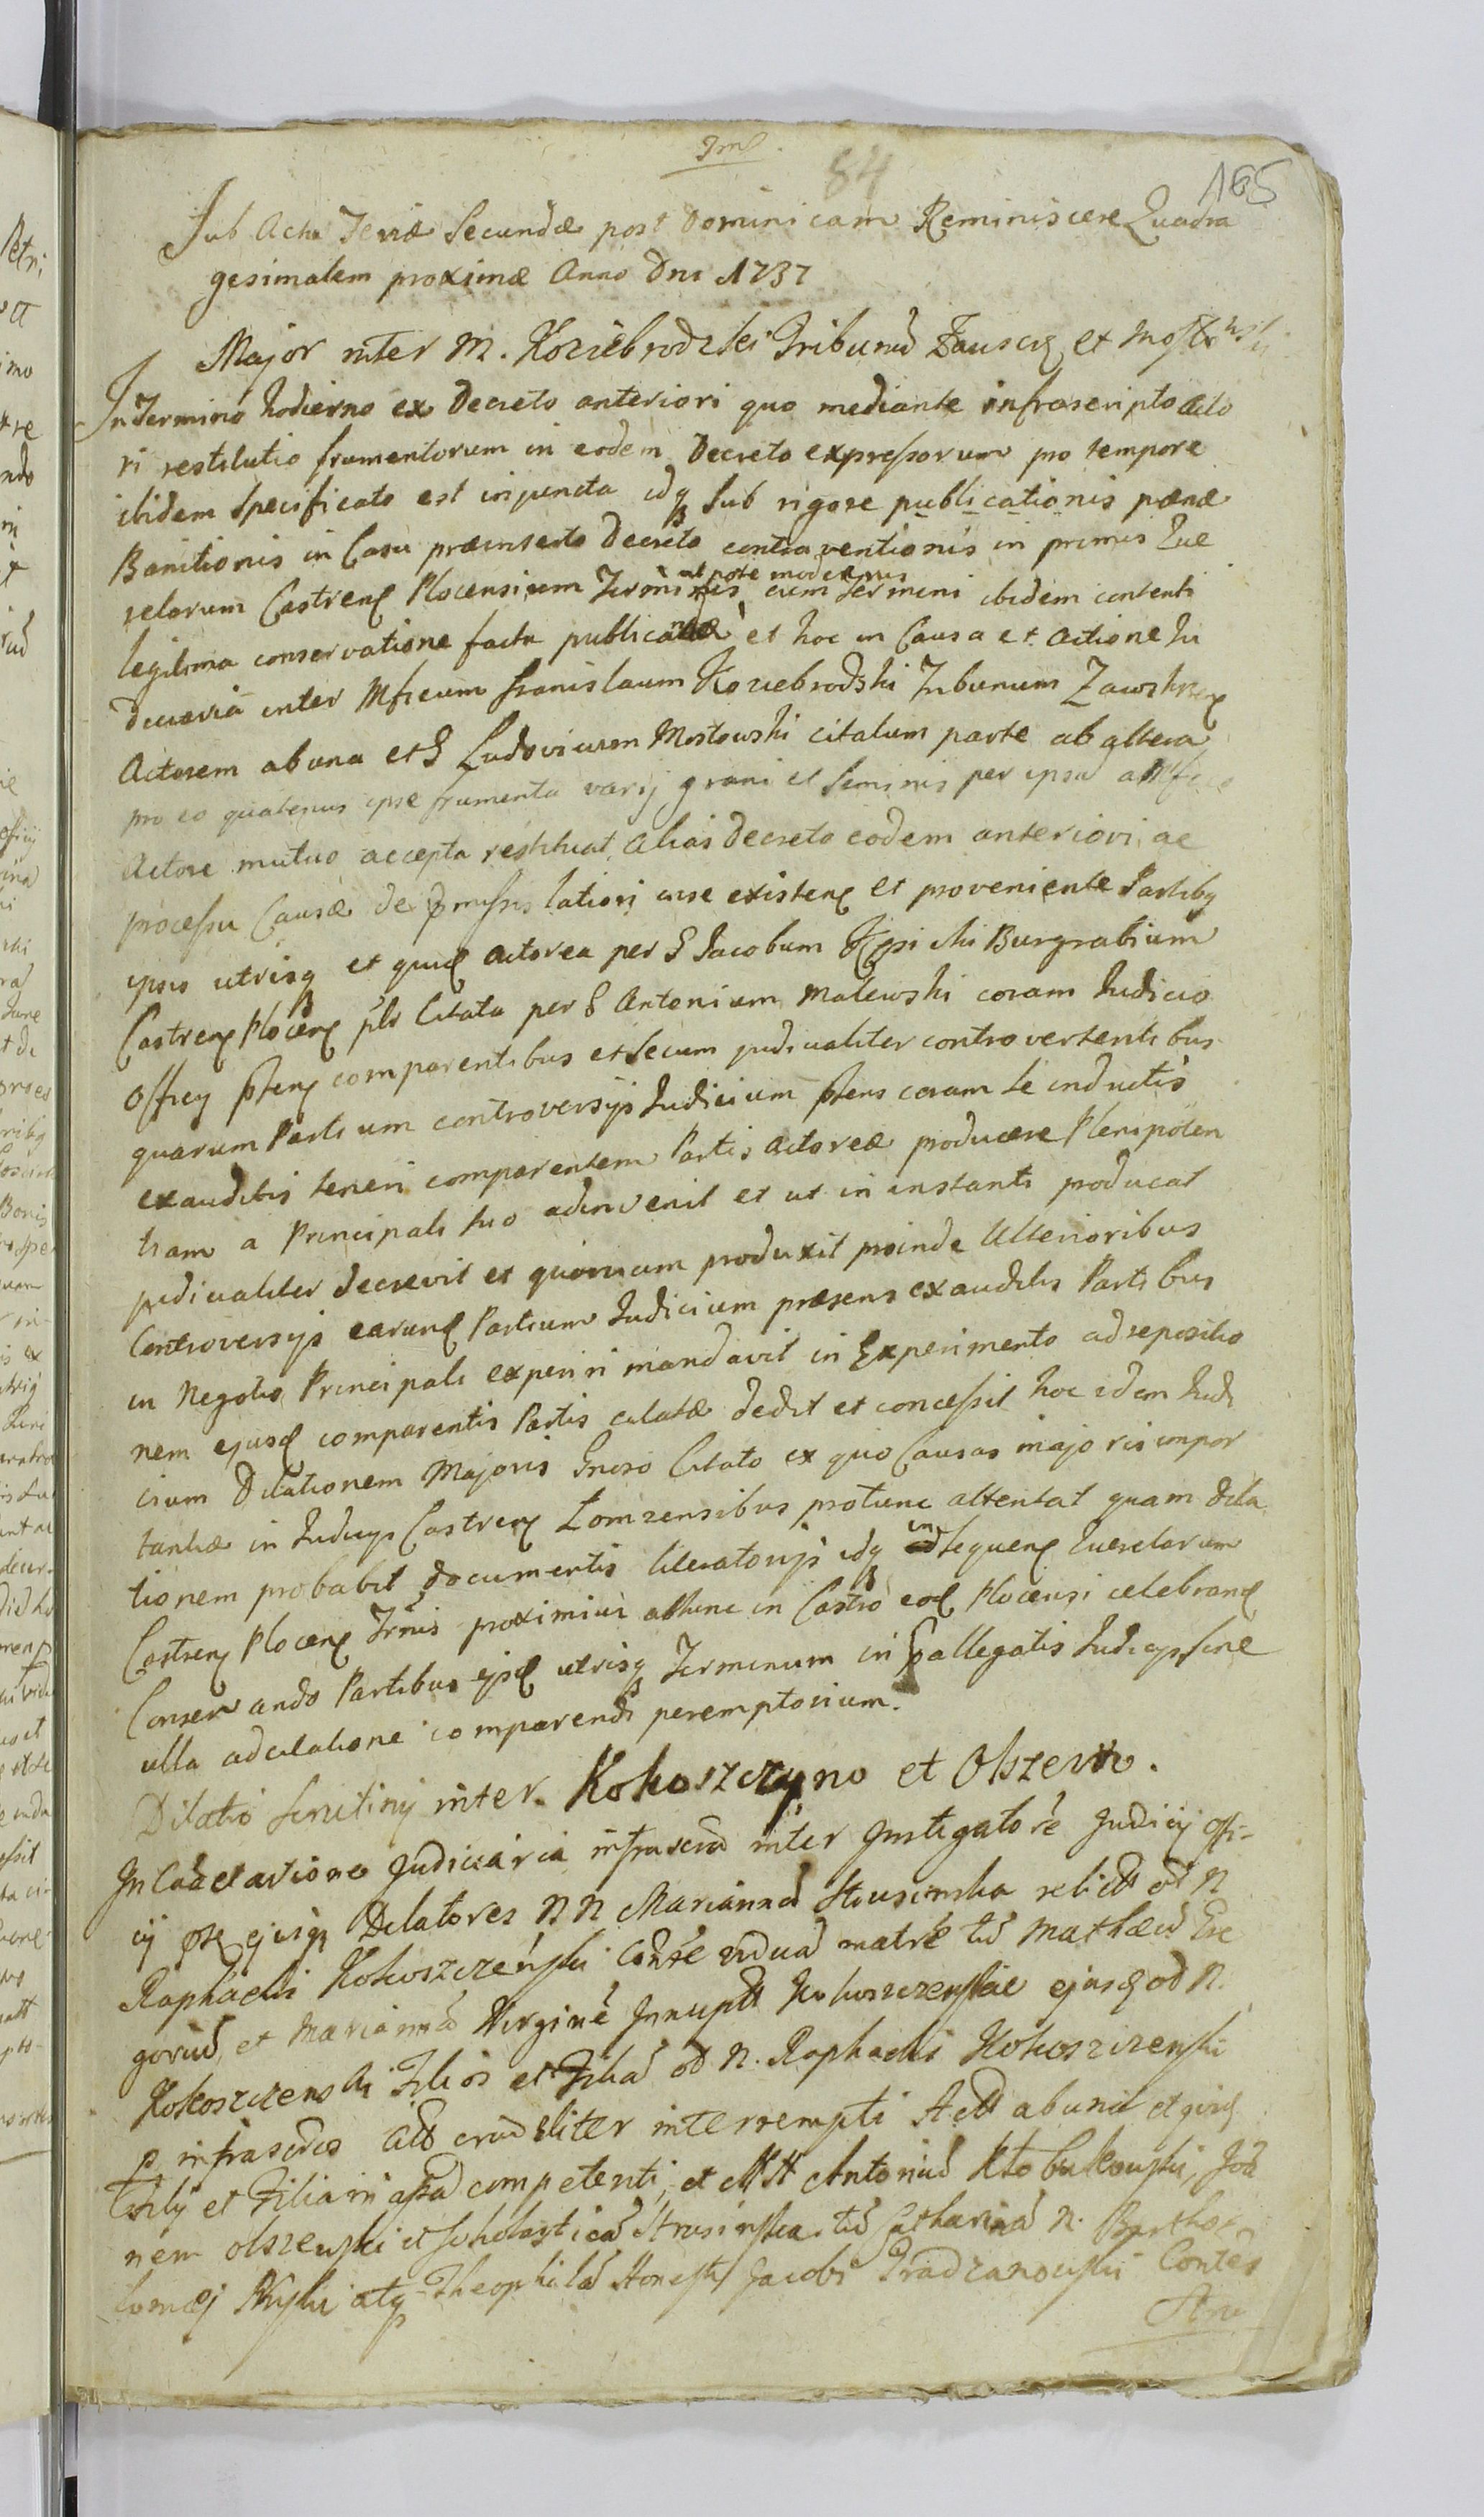 84
165
Sub Acta Feriæ Secundæ post Dominicam Reminiscere Quadra
gesimalem proximæ Anno Dni 1737
Major inter M. Koziebrodzki Tribunũ Zauscę et
In Termino hodierno ex Decreto anteriori quo mediante infrascripto Acto
ri restitutio frumentorum in eodem Decreto expressorum pro tempore
ibidem specificato est injuncta idq sub rigore publicationis pænæ
Banitionis in Casu præinserto Decreto contraventionis in primis Que
relarum Castren Plocensium Terminis utpote modernis cum termini ibidem contenti
legitima conservatione facta publicandæ et hoc in Causa et Actione Ju
diciaria inter Mficum Stanislaum Koziebrodzki Tribunum Zawskrzen
Actorem ab una et G Ludovicum Mostowski citatum parte ab altera
pro eo quatenus ipse frumenta varij grani et seminis per ipsũ a Mfico
Actore mutuo accepta restituat, alias decreto eodem anteriori ac
processu Causæ de pmissis latiori inse existen et proveniente Partibq
ipsis utrisq et quid actorea per G Jacobum Kępski Burgrabium
Castren Plocen pls Citata per G Antonium Malewski coram Judicio
Officij pten comparentibus et secum judicialiter controvertentibus
quarum Partium controversijs Judicium ptens coram se inductis
exauditis teneri comparentem Partis actoreæ producere Plenipoten
tiam a Principali suo adinvenit et ut in instanti producat
judicialiter decrevit et quoniam produxit proinde Ulterioribus
Controversijs earund Partium Judicium præsens exauditis Partibus
in Negotio Principali experiri mandavit in Experimento ad repositio
nem ejusd comparentis Partis citatæ dedit et concessit hoc idem Judi
cium Dilationem Majoris Gnoso Citato ex quo Causas majoris impor
tantiæ in Judicijs Castren Lomzensibus protunc attentat quam dila
tionem probabit documentis literatorijs idq in sequen Querelarum
Castren Plocen Trnis proximius abhinc in Castro eod Plocensi celebrand
Conservando Partibus ijsd utrisq Terminum in pallegatis Judicijs sine
ulla adcitatione comparendi peremptorium.
Dilatio scrutinij inter Kokoszczyno et Olszewo.
In Cã et actione Judiciaria infrascrã inter Instigatorẽ Judicij Offi-
cij pte ejusq Delatores N N Mariannã Strusinska relictã od N
Raphaelis Kokoszczenski Consrtẽ viduã matrẽ tũ Mathæũ Gre
goriũ et Mariannã Virginẽ Innuptã Kokoszczenskie ejusq od N.
Kokoszczenski Filios et Filiã od N. Raphaelis Kokoszczenski
p infrascrtos crudeliter interrempti Actã ab una et quid
Filij et Filia in assã competenti, et NN Antoniũ Kłobukowski, Joã
nem Olszewski et Scholasticã Strusinska tũ Catharinã N. Bartho
lomæj atq Theophilã Honesti Jacobi Pradzanowski Contes